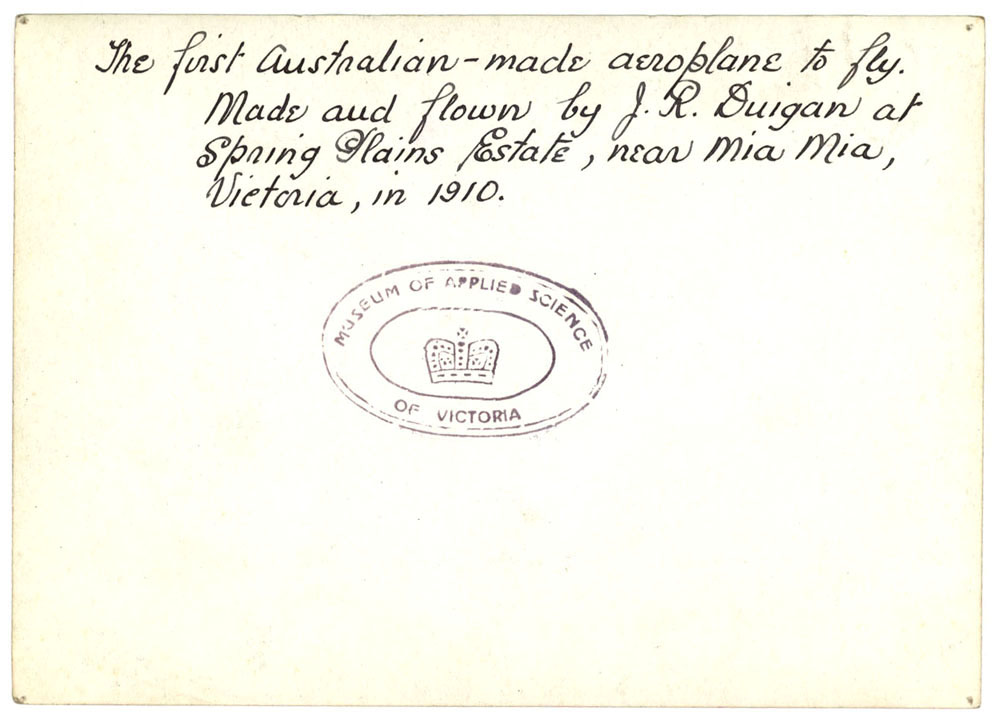 The first Australian-made aeroplane to fly.
Made and flown by J. R. Duigan at
Spring Plains Estate, near Mia Mia,
Victoria, in 1910.
MUSEUM OF APPLIED SCIENCE
OF VICTORIA